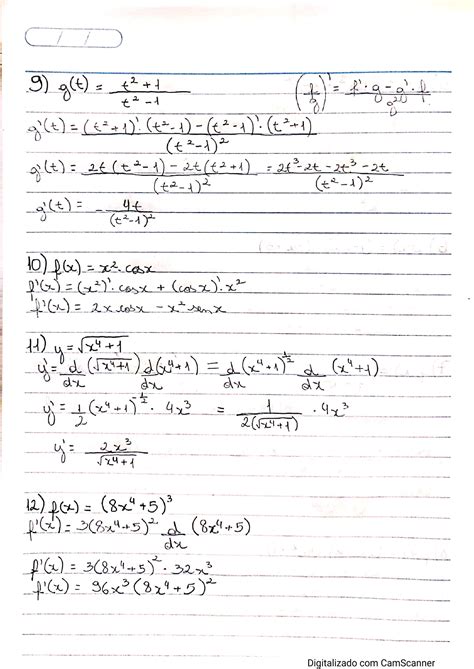 / /
9) g(t) = t²+1 / t²-1     (f/g)' = f'·g - g'·f / g²
g'(t) = (t²+1)'·(t²-1) - (t²-1)'·(t²+1) / (t²-1)²
g'(t) = 2t(t²-1) - 2t(t²+1) / (t²-1)² = 2t³-2t-2t³-2t / (t²-1)²
g'(t) = - 4t / (t²-1)²
10) f(x) = x²·cosx
f'(x) = (x²)'·cosx + (cosx)'·x²
f'(x) = 2x cosx - x² senx
11) y = √x⁴+1
y' = d/dx (√x⁴+1) d/dx (x⁴+1) = d/dx (x⁴+1)^½ d/dx (x⁴+1)
y' = 1/2 (x⁴+1)^-½ · 4x³ = 1 / 2(√x⁴+1) · 4x³
y' = 2x³ / √x⁴+1
12) f(x) = (8x⁴+5)³
f'(x) = 3(8x⁴+5)² d/dx (8x⁴+5)
f'(x) = 3(8x⁴+5)² · 32x³
f'(x) = 96x³(8x⁴+5)²
Digitalizado com CamScanner